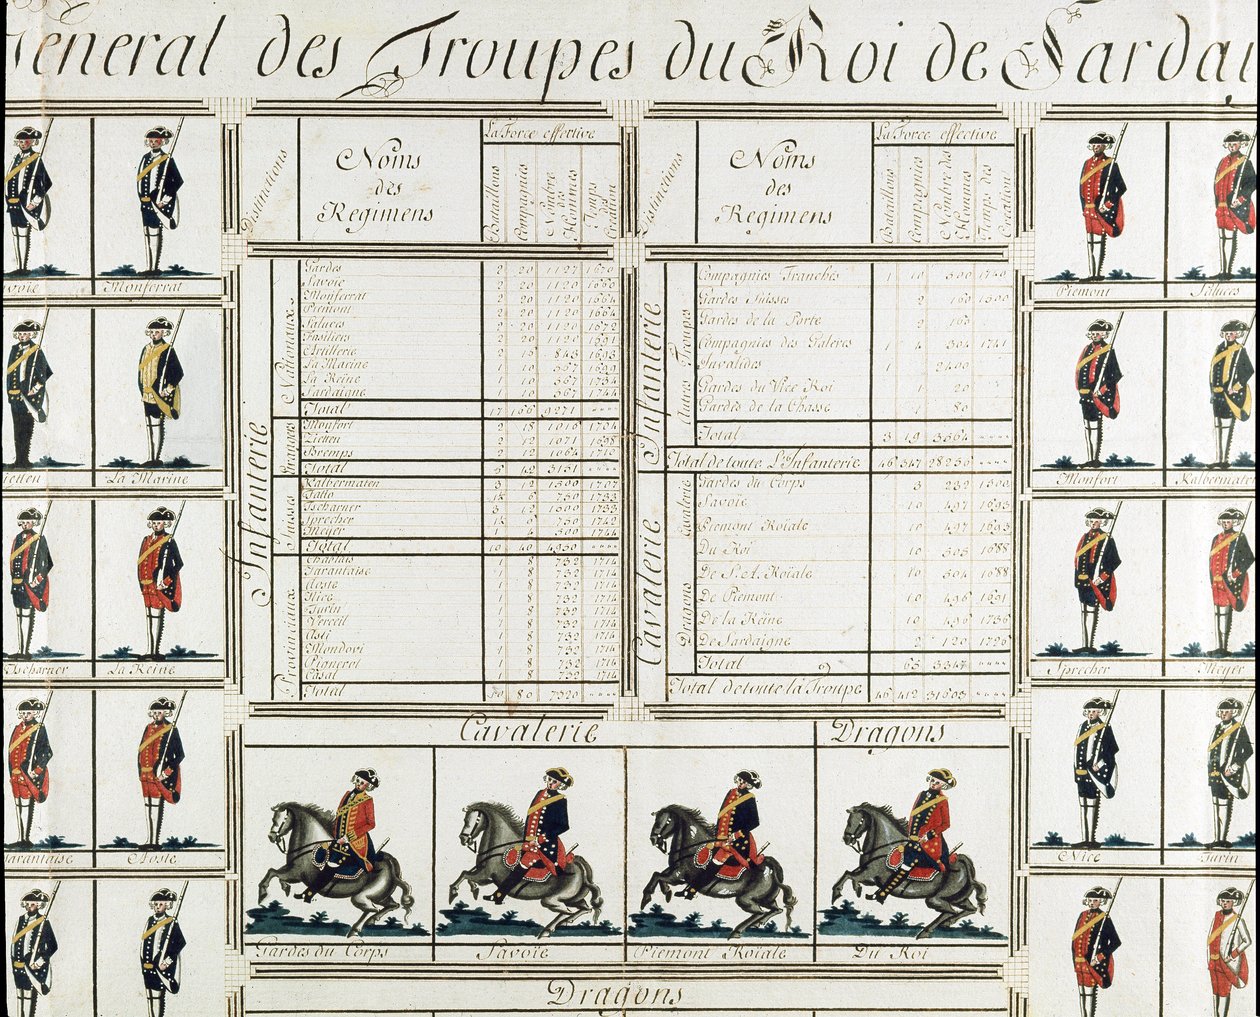 General des Troupes du Roi de Sardai
Distinctions
Noms des Regimens
La Force effective
Bataillons
Compagnies
Nombre des Hommes
Temps des Creation
Distinctions
Noms des Regimens
La Force effective
Bataillons
Compagnies
Nombre des Hommes
Temps des Creation
Infanterie
Nationaux
Gardes 2 20 1127 1670
Savoie 2 20 1120 1660
Monferrat 2 20 1120 1664
Piemont 2 20 1120 1664
Saluces 2 20 1120 1672
Fusiliers 2 20 1120 1691
Artillerie 2 15 843 1693
La Marine 1 10 567 1699
La Reine 1 10 567 1734
Sardaigne 1 10 567 1744
Total 17 166 9271
Monfort 2 18 1016
Zietten 2 12 1071 1698
Bremps 2 12 1064 1710
Total 5 42 3151
Suisses
Kalbermaten 3 12 1500 1707
6 750 1733
Tscharner 3 12 1500 1733
Sprecher 6 750 1742
Meyer 1 4 500 1744
Total 10 40 4950
Provinciaux
Chablais 1 8 732 1714
Tarantaise 1 8 732 1714
Aoste 1 8 732 1714
Nice 1 8 732 1714
Turin 1 8 732 1714
Verceil 1 8 732 1714
Asti 1 8 732 1714
Mondovi 1 8 732 1714
Pignerol 1 8 732 1714
Casal 1 8 732 1714
Total 10 80 7320
Infanterie
Autres Troupes
Compagnies Franches 1 10 500 1740
Gardes Suisses 2 160 1500
Gardes de la Porte 2
Compagnies des Galeres 1 4 304 1741
Invalides 1 2400
Gardes du Vice Roi 1 20
Gardes de la Chasse 1 80
Total 3 19 3564
Total de toute L'Infanterie 46 347 28256
Cavalerie
Cavalerie
Gardes du Corps 3 232 1500
Savoie 10 497 1693
Piemont Roiale 10 497 1693
Dragons
Du Roi 10 503 1688
De S. A. Roïale 10 504 1688
De Piemont 10 496 1691
De la Reïne 10 496 1736
De Sardaigne 2 120 1726
Total 65 3347
Total de toute la Troupe 46 412 31603
Savoie
Monferrat
Zietten
La Marine
Tscharner
La Reine
Tarantaise
Aoste
Piemont
Saluces
Monfort
Kalbermaten
Sprecher
Meyer
Nice
Turin
Cavalerie
Dragons
Gardes du Corps
Savoïe
Piemont Roïale
Du Roi
Dragons